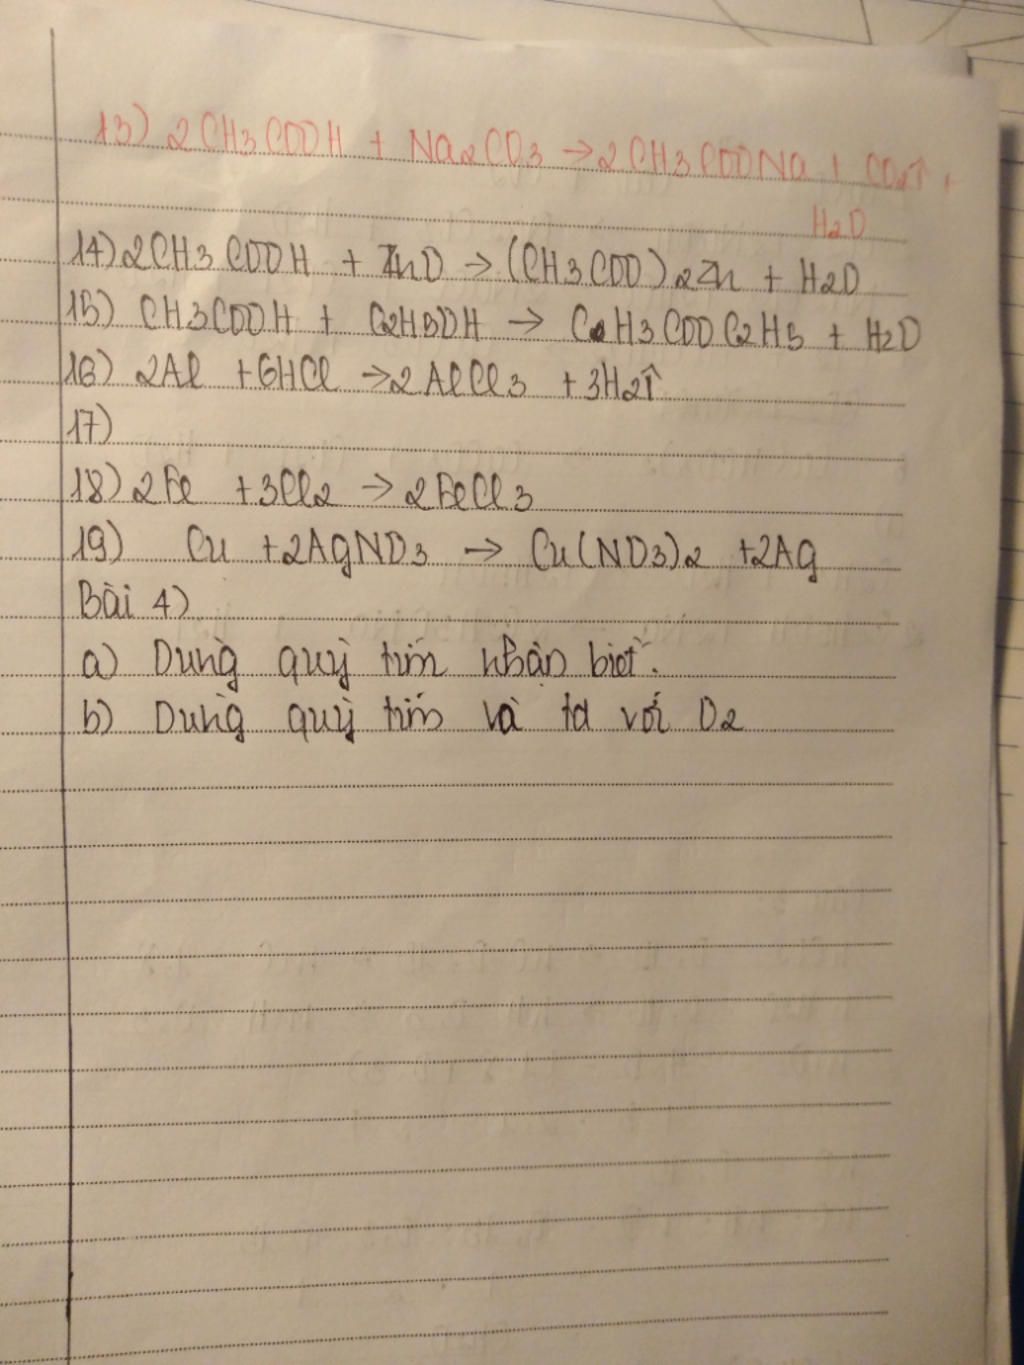 13) 2CH3COOH + Na2CO3 → 2CH3COONa + CO2↑ +
H2O
14) 2CH3COOH + ZnO → (CH3COO)2Zn + H2O
15) CH3COOH + C2H5OH → C2H3COOC2H5 + H2O
16) 2Al + 6HCl → 2AlCl3 + 3H2↑
17)
18) 2Fe + 3Cl2 → 2FeCl3
19) Cu + 2AgNO3 → Cu(NO3)2 + 2Ag
Bài 4)
a) Dùng quỳ tím nhận biết.
b) Dùng quỳ tím và td với O2